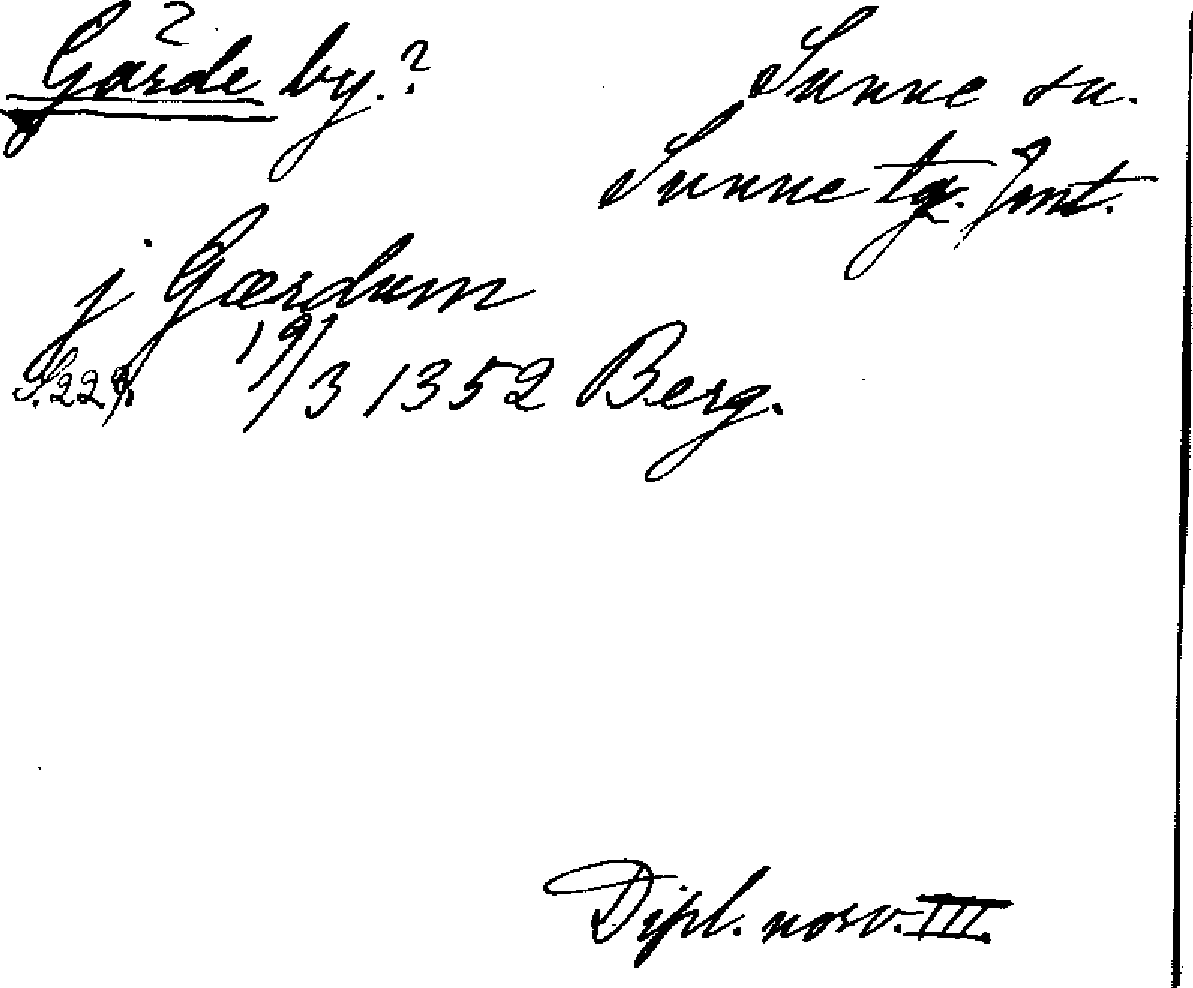 Gärde by.?
Sunne sn.
Sunne tg. Jmt.
j Gærdum
S. 229. 19/3 1352 Berg.
Dipl. norv. III.